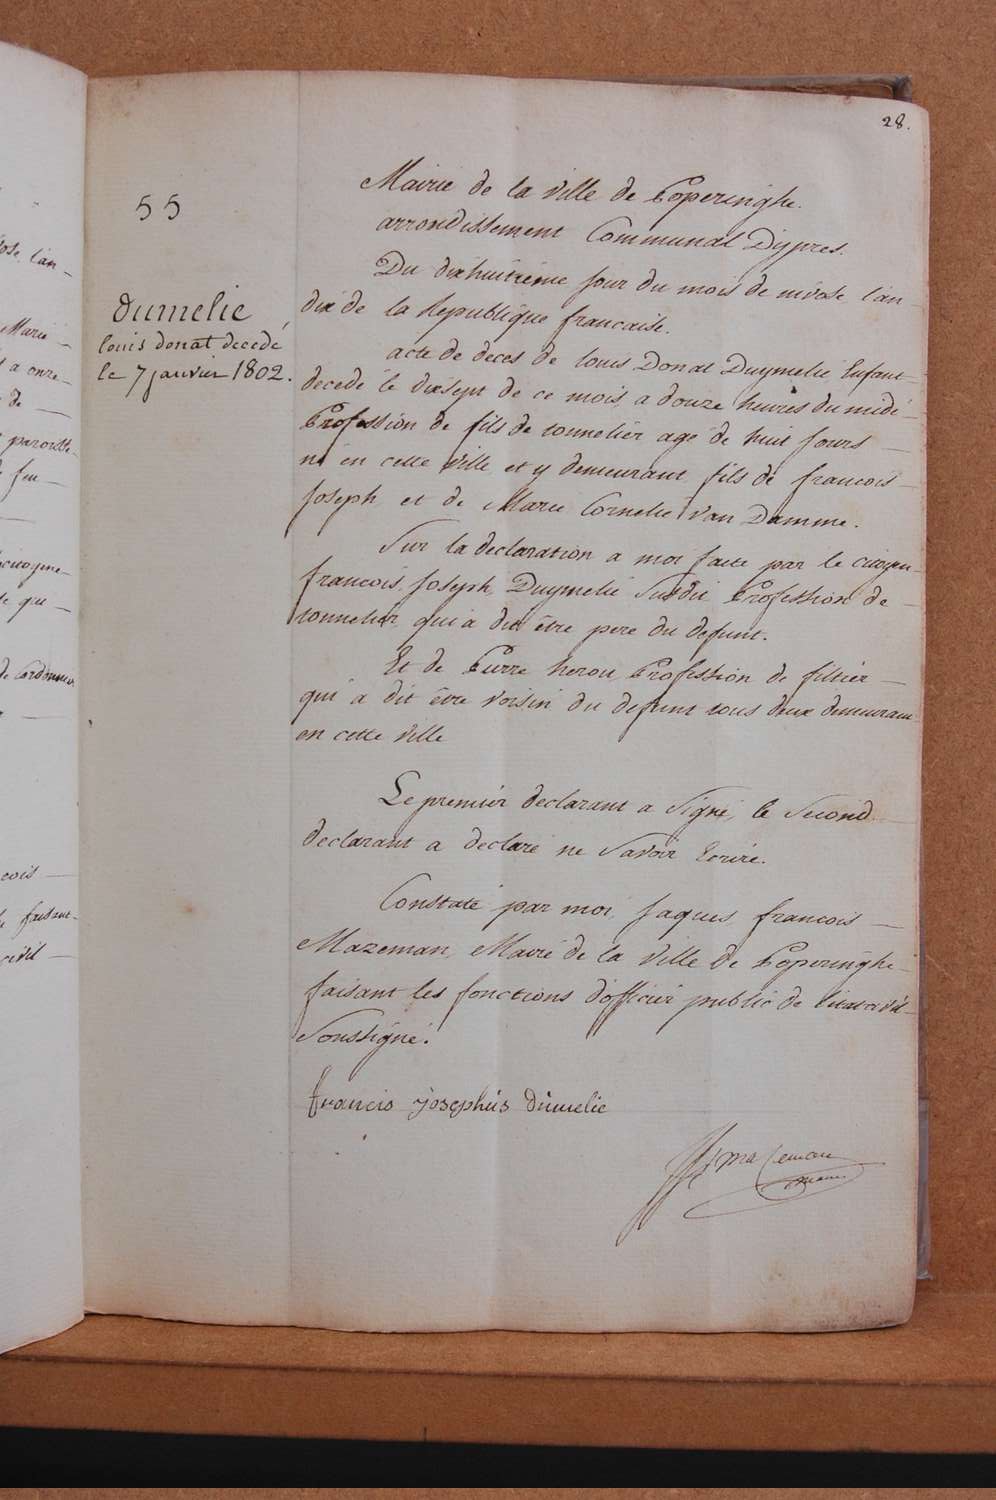 28.
55
dumelie
louis donat decedé
le 7 janvier 1802.
Mairie de la ville de Poperinghe.
arrondissement Communal Dypres.
Du dixhuitieme jour du mois de nivose l'an
dix de la Republique francaise.
acte de deces de louis Donat Duymelie, Enfant
decedé le dixsept de ce mois, a douze heures du midi
Profession de fils de tonnelier agé de huit jours
né en cette ville et y demeurant fils de francois
Joseph, et de Marie Cornelie Van Damme.
Sur la declaration a moi faite par le citoyen
francois, Joseph, Duymelie susdit Profession de
tonnelier, qui a dit être pere du defunt.
Et de Pierre herou Profession de filtier
qui a dit être voisin du defunt tous deux demeurant
en cette ville
Le premier declarant a Signé, le Second
declarant a declaré ne Savoir Ecrire.
Constaté par moi, Jaques, francois
Mazeman, Maire de la Ville de Poperinghe
faisant les fonctions d'officier public de l'etat civil
Soussigné.
francis josephus dumelie
mazeman
maire
ose, l'an
Marie
a onze
de
paroisse
feu
citoyen
qui
de Cordonnier
cois
faisant
civil